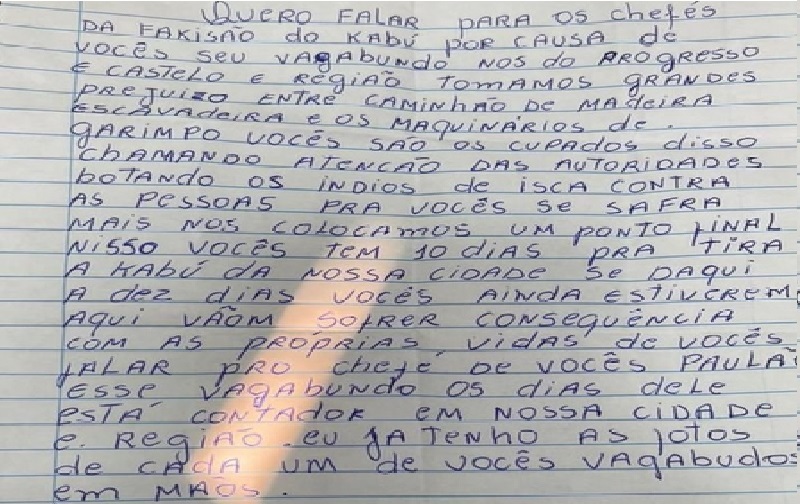 QUERO FALAR PARA OS CHEFÉS
DA FAKISÃO DO KABÚ POR CAUSA DE
VOCÊS SEU VAGABUNDO NOS DO PROGRESSO
E CASTELO E REGIÃO TOMAMOS GRANDES
PREJUIZO ENTRE CAMINHÃO DE MADEIRA
ESCAVADEIRA E OS MAQUINÁRIOS DE.
GARIMPO VOCÊS SÃO OS CUPADOS DISSO
CHAMANDO ATENCÃO DAS AUTORIDADES
BOTANDO OS ÍNDIOS DE ISCA CONTRA
AS PESSOAS PRA VOCÊS SE SAFRA
MAIS NOS COLOCAMOS UM PONTO FINAL
NISSO VOCÊS TEM 10 DIAS PRA TIRA
A KABÚ DA NOSSA CIDADE SE DAQUI
A DEZ DIAS VOCÊS AINDA ESTIVEREM
AQUI VÃOM SOFRER CONSEQUÊNCIA
COM AS PRÓPRIAS VIDAS DE VOCÊS
FALAR PRO CHEFE DE VOCÊS PAULÃO
ESSE VAGABUNDO OS DIAS DELE
ESTÁ CONTADOR EM NOSSA CIDADE
E. REGIÃO. EU JA TENHO AS FOTOS
DE CADA UM DE VOCÊS VAGABUDOS
EM MÃOS.